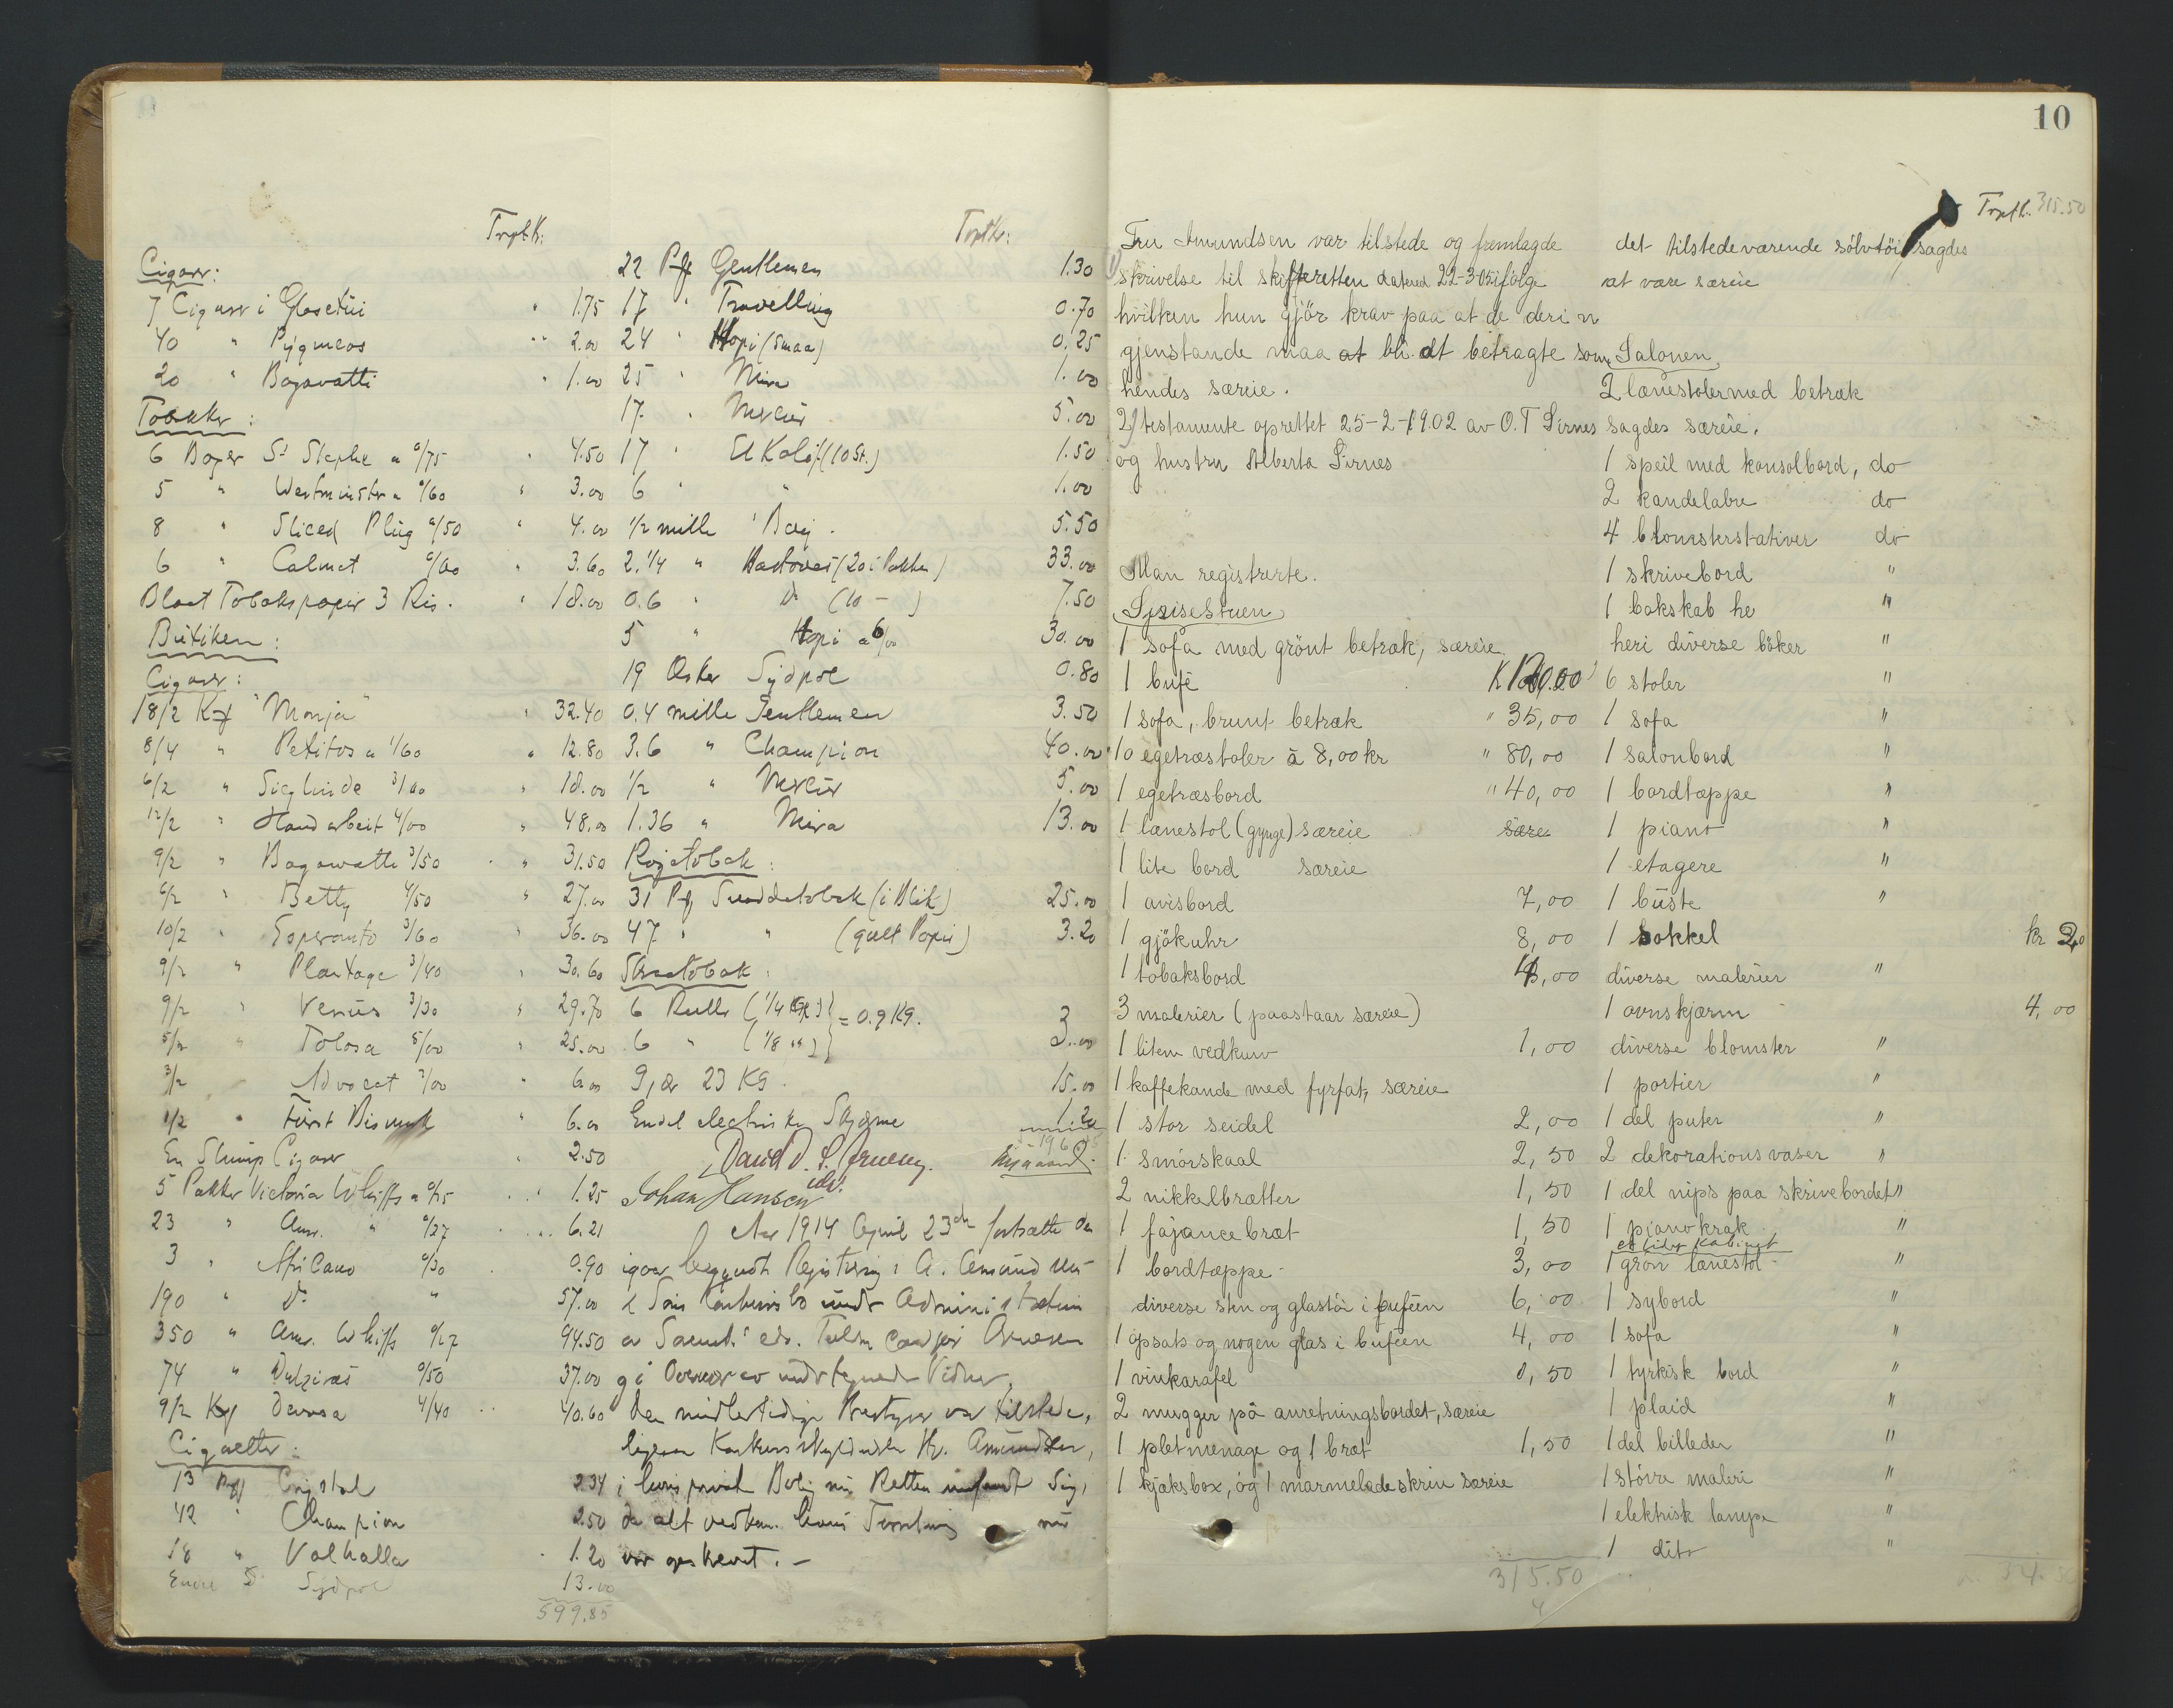 Trptk:
Cigarr:
7 Cigarr i Glasetui " 1.75
40 " Pygmeos " 2.00
20 " Bagavatti " 1.00
Tobakker:
6 Boxer St a 0/75 " 4.50
5 " Westminster a 0/60 " 3.00
8 " Sliced Plug 0/50 " 4.00
6 " Calmet 0/60 " 3.60
Blaat Tobakspapir 3 Ris. " 18.00
Butiken:
Cigarr:
18/2 K "Monja" " 32.40
8/4 " Petitos a 1/60 " 12.80
6/2 " Sieglinde 3/00 " 18.00
12/2 " Handarbeit 4/00 " 48.00
9/2 " Bagawatti 3/50 " 31.50
6/2 " Betty 4/50 " 27.00
10/2 " Esperanto 3/60 " 36.00
9/2 " Plantage 3/40 " 30.60
9/2 " Venus 3/30 " 29.70
5/2 " Tolosa 5/00 " 25.00
3/2 " Advocat 2/00 " 6.00
1/2 " Fürst Bismark " 6.00
En Slump Cigarer " 2.50
5 Pakker Victoria Whiffs a 0/25 " 1.25
23 " Am. " 0/27 6.21
3 " Africano 0/30 0.90
190 " Do " 57.00
350 " Am. Whiffs 0/27 94.50
74 " 0/50 37.00
9/2 K Devosa 4/40 40.60
Cigaetter:
13 Crystal 2.34
42 " Champion 2.50
18 " Valhalla 1.20
Sydpol 13.00
599.85
Trptk:
22 Pk Gentlemen 1.30
17 " Travelling 0.70
24 " Hopi (Smaa) 0.25
25 " Mira 1.00
17 " Mercur 5.00
17 " (10 St.) 1.50
6 " " 1.00
1/2 mille 5.50
2.1/4 " (20 i Pakken) 33.00
0.6 " Do (10 - ) 7.50
5 " Hopi a 6/00 30.00
19 Æsker Sydpol 0.80
0.4 mille Gentlemen 3.50
3.6 " Champion 40.00
1/2 " Mercur 5.00
1.36 " Mira 13.00
Røgetobak:
31 Pk (i Blik) 25.00
47 " " (gult Papir) 3.20
Skraatobak:
6 Ruller (1/4 Kg) } = 0.9 Kg.
6 " (1/8 " ) } 3.00
9, do 23 Kg. 15.00
Endel electriske Skjærme 1.20
Johan Hansen
Aar 1914 April 23de fortsatte den
igaar begyndt Registrering i A. Amund
Konkursbo under Administration
av
g i Overvær av undertegnede Vidner,
Den midlertidige Bestyrer var tilstede,
ligesaa Konkursskyldneren Hr. Amundsen,
i hvis privat Bolig nu Retten indfandt sig,
da alt vedkom. hans Forretning nu
var opskrevet. -
10
Trptk. 315.50
Fru Amundsen var tilstede og fremlagde
1) skrivelse til skifteretten dateret 22-3-05 ifølge
hvilken hun gjör krav paa at de deri n
gjenstande maa at bli dt betragte som
hendes særeie.
2) testamente oprettet 25-2-1902 av O. T Sirnes
og hustru Alberta Sirnes
Man registrerte.
Spisestuen
1 sofa med grönt betræk, særeie
1 bufé
1 sofa, brunt betræk " 35,00
10 egetræstoler à 8,00 kr " 80,00
1 egetræsbord " 40,00
1 lænestol (gynge) særeie
1 lite bord særeie
1 avisbord 7,00
1 gjökuhr 8,00
1 tobaksbord
3 malerier (paastaar særeie)
1 liten vedkurv 1,00
1 kaffekande med fyrfat, særeie
1 stor seidel 2,00
1 smörskaal 2,50
2 nikkelbrætter 1,50
1 fajancebræt 1,50
1 bordtæppe 3,00
diverse sten og glastöi i buféen 6,00
1 opsats og nogen glas i buféen 4,00
1 vinkarafel 0,50
2 mugger på anretningsbordet, særeie
1 pletmenage og 1 bræt 1,50
1 kjæksbox, og 1 marmeladeskrin særeie
315.50
det tilstedeværende sölvtöi sagdes
at være særeie
Salonen
2 lænestoler med betræk
sagdes særeie.
1 speil med konsolbord, do
2 kandelabre do
4 blomsterstativer do
1 skrivebord "
1 bokskab he "
heri diverse böker "
6 stoler "
1 sofa "
1 salonbord "
1 bordtæppe "
1 piano "
1 etagere "
1 büste "
1 sokkel kr 2,0
diverse malerier "
1 ovnskjærm 4,00
diverse blomster "
1 portier "
1 del puter "
2 dekorationsvaser "
1 del nips paa skrivebordet "
1 pianokrak "
et lidet Kabinet
1 grön lænestol "
1 sybord "
1 sofa "
1 tyrkisk bord "
1 plaid "
1 del billeder "
1 större maleri "
1 elektrisk lampe "
1 dito "